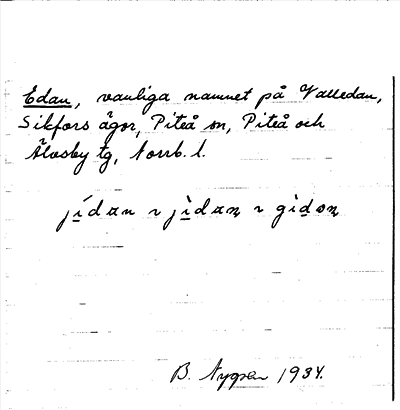 Edan, vanliga namnet på Valledan,
Sikfors ägor, Piteå sn, Piteå och
Älvsby tg, Norrb. l.
jídan ~ jìdan ~ gìdon
B. Nygren 1934.